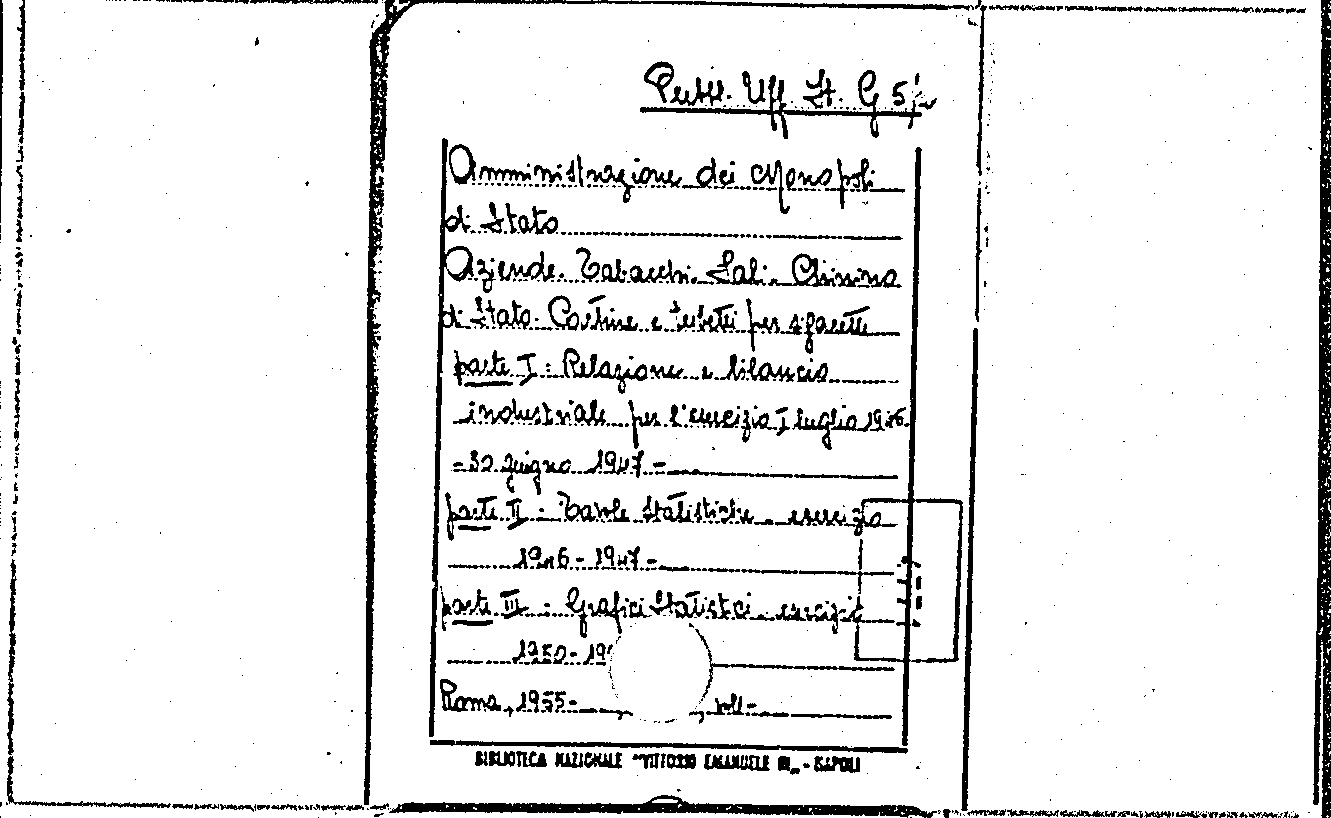 Pubbl. Uff. St. G 5/
Amministrazione dei Monopoli
di Stato
Aziende. Tabacchi. Sali. Chinino
di Stato. Cartine e tubetti per sigarette
parte I: Relazione e bilancio
industriale per l'esercizio I luglio 1946.
- 30 giugno 1947 -
parte II: Tavole statistiche. esercizio
1946 - 1947 -
parte III: Grafici Statistici. esercizio
1950 - 19
Roma, 1955 - , voll -
BIBLIOTECA NAZIONALE "VITTORIO EMANUELE III„ - NAPOLI